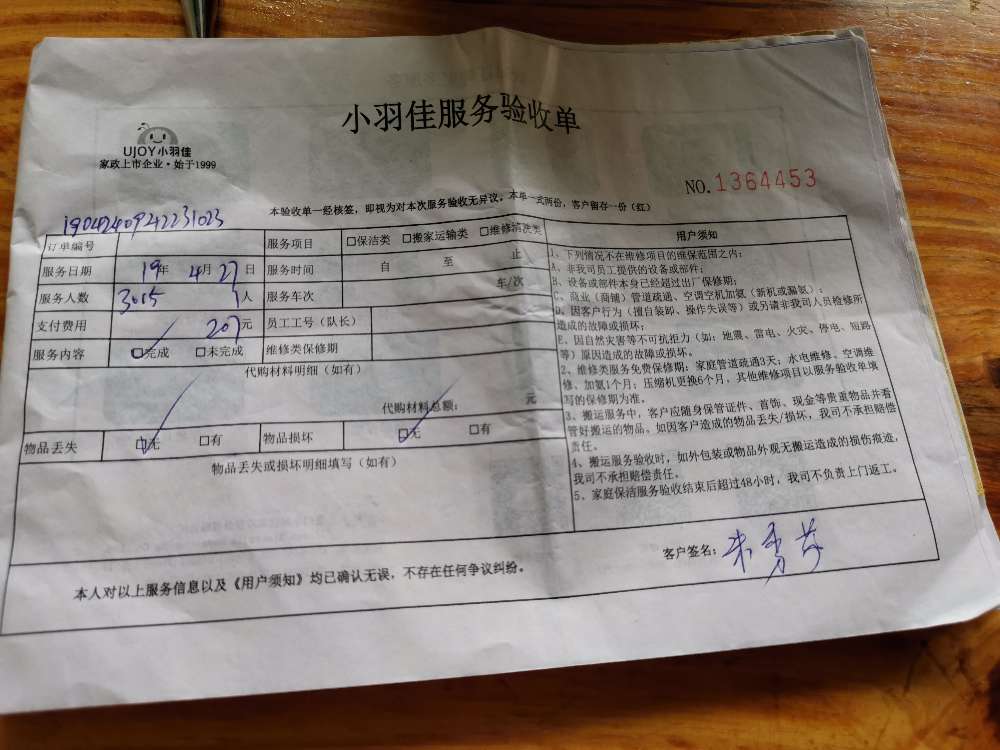 小羽佳服务验收单
UJOY小羽佳
家政上市企业·始于1999
NO.1364453
本验收单一经核签，即视为对本次服务验收无异议。本单一式两份，客户留存一份（红）
1904240942231023
订单编号 服务项目 □保洁类 □搬家运输类 □维修清洗类
服务日期 19年 4月 27日 服务时间 自 至 止
服务人数 3015 1人 服务车次 车/次
支付费用 207元 员工工号（队长）
服务内容 □完成 □未完成 维修类保修期
代购材料明细（如有）
代购材料总额： 元
物品丢失 □无 □有 物品损坏 □无 □有
物品丢失或损坏明细填写（如有）
用户须知
1、下列情况不在维修项目的维保范围之内：
A、非我司员工提供的设备或部件；
B、设备或部件本身已经超过出厂保修期；
C、商业（商铺）管道疏通、空调空机加氨（新机或漏氨）；
D、因客户行为（擅自装卸、操作失误等）或另请非我司人员检修所
造成的故障或损坏；
E、因自然灾害等不可抗拒力（如：地震、雷电、火灾、停电、短路
等）原因造成的故障或损坏。
2、维修类服务免费保修期：家庭管道疏通3天；水电维修、空调维
修、加氨1个月；压缩机更换6个月，其他维修项目以服务验收单填
写的保修期为准。
3、搬运服务中，客户应随身保管证件、首饰、现金等贵重物品并看
管好搬运的物品。如因客户造成的物品丢失/损坏，我司不承担赔偿
责任。
4、搬运服务验收时，如外包装或物品外观无搬运造成的损伤痕迹，
我司不承担赔偿责任。
5、家庭保洁服务验收结束后超过48小时，我司不负责上门返工。
客户签名：
本人对以上服务信息以及《用户须知》均已确认无误，不存在任何争议纠纷。